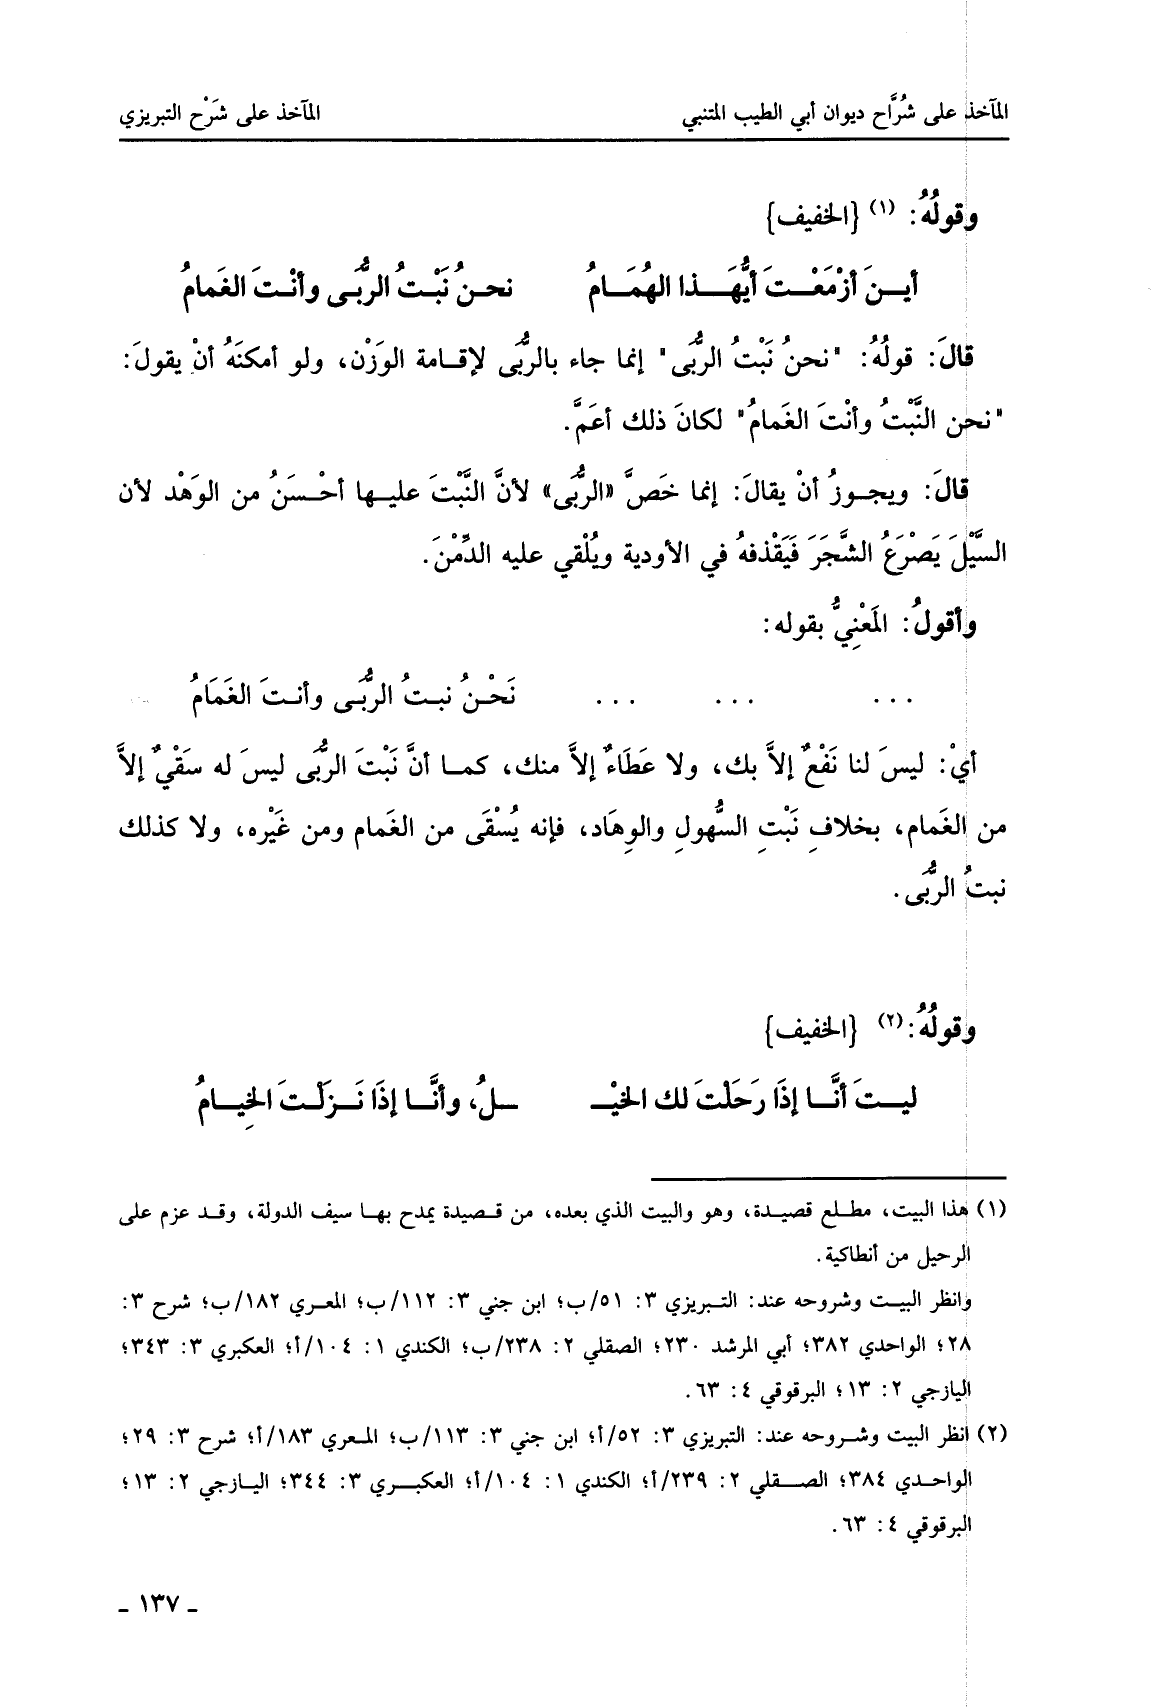 المآخذ على شُرَّاح ديوان أبي الطيب المتنبي المآخذ على شَرْح التبريزي
وقولُهُ: (١) {الخفيف}
أيـنَ أزْمَعْـتَ أيُّهَـذا الهُمَـامُ نحـنُ نَبْـتُ الرُّبَـى وأنْـتَ الغَمامُ
قالَ: قولُهُ: "نحنُ نَبْتُ الرُّبَى" إنما جاء بالرُّبَى لإقـامة الوَزْن، ولو أمكنَهُ أنْ يقولَ:
"نحن النَّبْتُ وأنْتَ الغَمامُ" لكانَ ذلك أعَمَّ.
قالَ: ويجـوزُ أنْ يقالَ: إنما خَصَّ «الرُّبَى» لأنَّ النَّبْتَ عليـها أحْـسَنُ من الوَهْد لأن
السَّيْلَ يَصْرَعُ الشَّجَرَ فَيَقْذفهُ في الأودية ويُلْقي عليه الدِّمْنَ.
وأقولُ: المَعْنِيُّ بقوله:
... ... ... نَحْـنُ نبـتُ الرُّبَـى وأنـتَ الغَمَامُ
أيْ: ليسَ لنا نَفْعٌ إلاَّ بك، ولا عَطَاءٌ إلاَّ منك، كمـا أنَّ نَبْتَ الرُّبَى ليسَ له سَقْيٌ إلاَّ
من الغَمام، بخلافِ نَبْتِ السُّهولِ والوِهَاد، فإنه يُسْقَى من الغَمام ومن غَيْره، ولا كذلك
نبتُ الرُّبَى.
وقولُهُ:(٢) {الخفيف}
ليـتَ أنَّـا إذَا رَحَلْتَ لك الخَيْـ ـلُ، وأنَّـا إذَا نَـزَلْـتَ الخِيـامُ
(١) هذا البيت، مطـلع قصيـدة، وهو والبيت الذي بعده، من قـصيدة يمدح بهـا سيف الدولة، وقـد عزم على
الرحيل من أنطاكية.
وانظر البيـت وشروحه عند: التـبريزي ٣: ٥١/ب؛ ابن جني ٣: ١١٢/ب؛ المعـري ١٨٢/ب؛ شرح ٣:
٢٨؛ الواحدي ٣٨٢؛ أبي المرشد ٢٣٠؛ الصقلي ٢: ٢٣٨/ب؛ الكندي ١: ١٠٤/أ؛ العكبري ٣: ٣٤٣؛
اليازجي ٢: ١٣؛ البرقوقي ٤: ٦٣.
(٢) انظر البيت وشـروحه عند: التبريزي ٣: ٥٢/أ؛ ابن جني ٣: ١١٣/ب؛ المـعري ١٨٣/أ؛ شرح ٣: ٢٩؛
الواحـدي ٣٨٤؛ الصـقلي ٢: ٢٣٩/أ؛ الكندي ١: ١٠٤/أ؛ العكبـري ٣: ٣٤٤؛ اليـازجي ٢: ١٣؛
البرقوقي ٤: ٦٣.
ـ ١٣٧ ـ